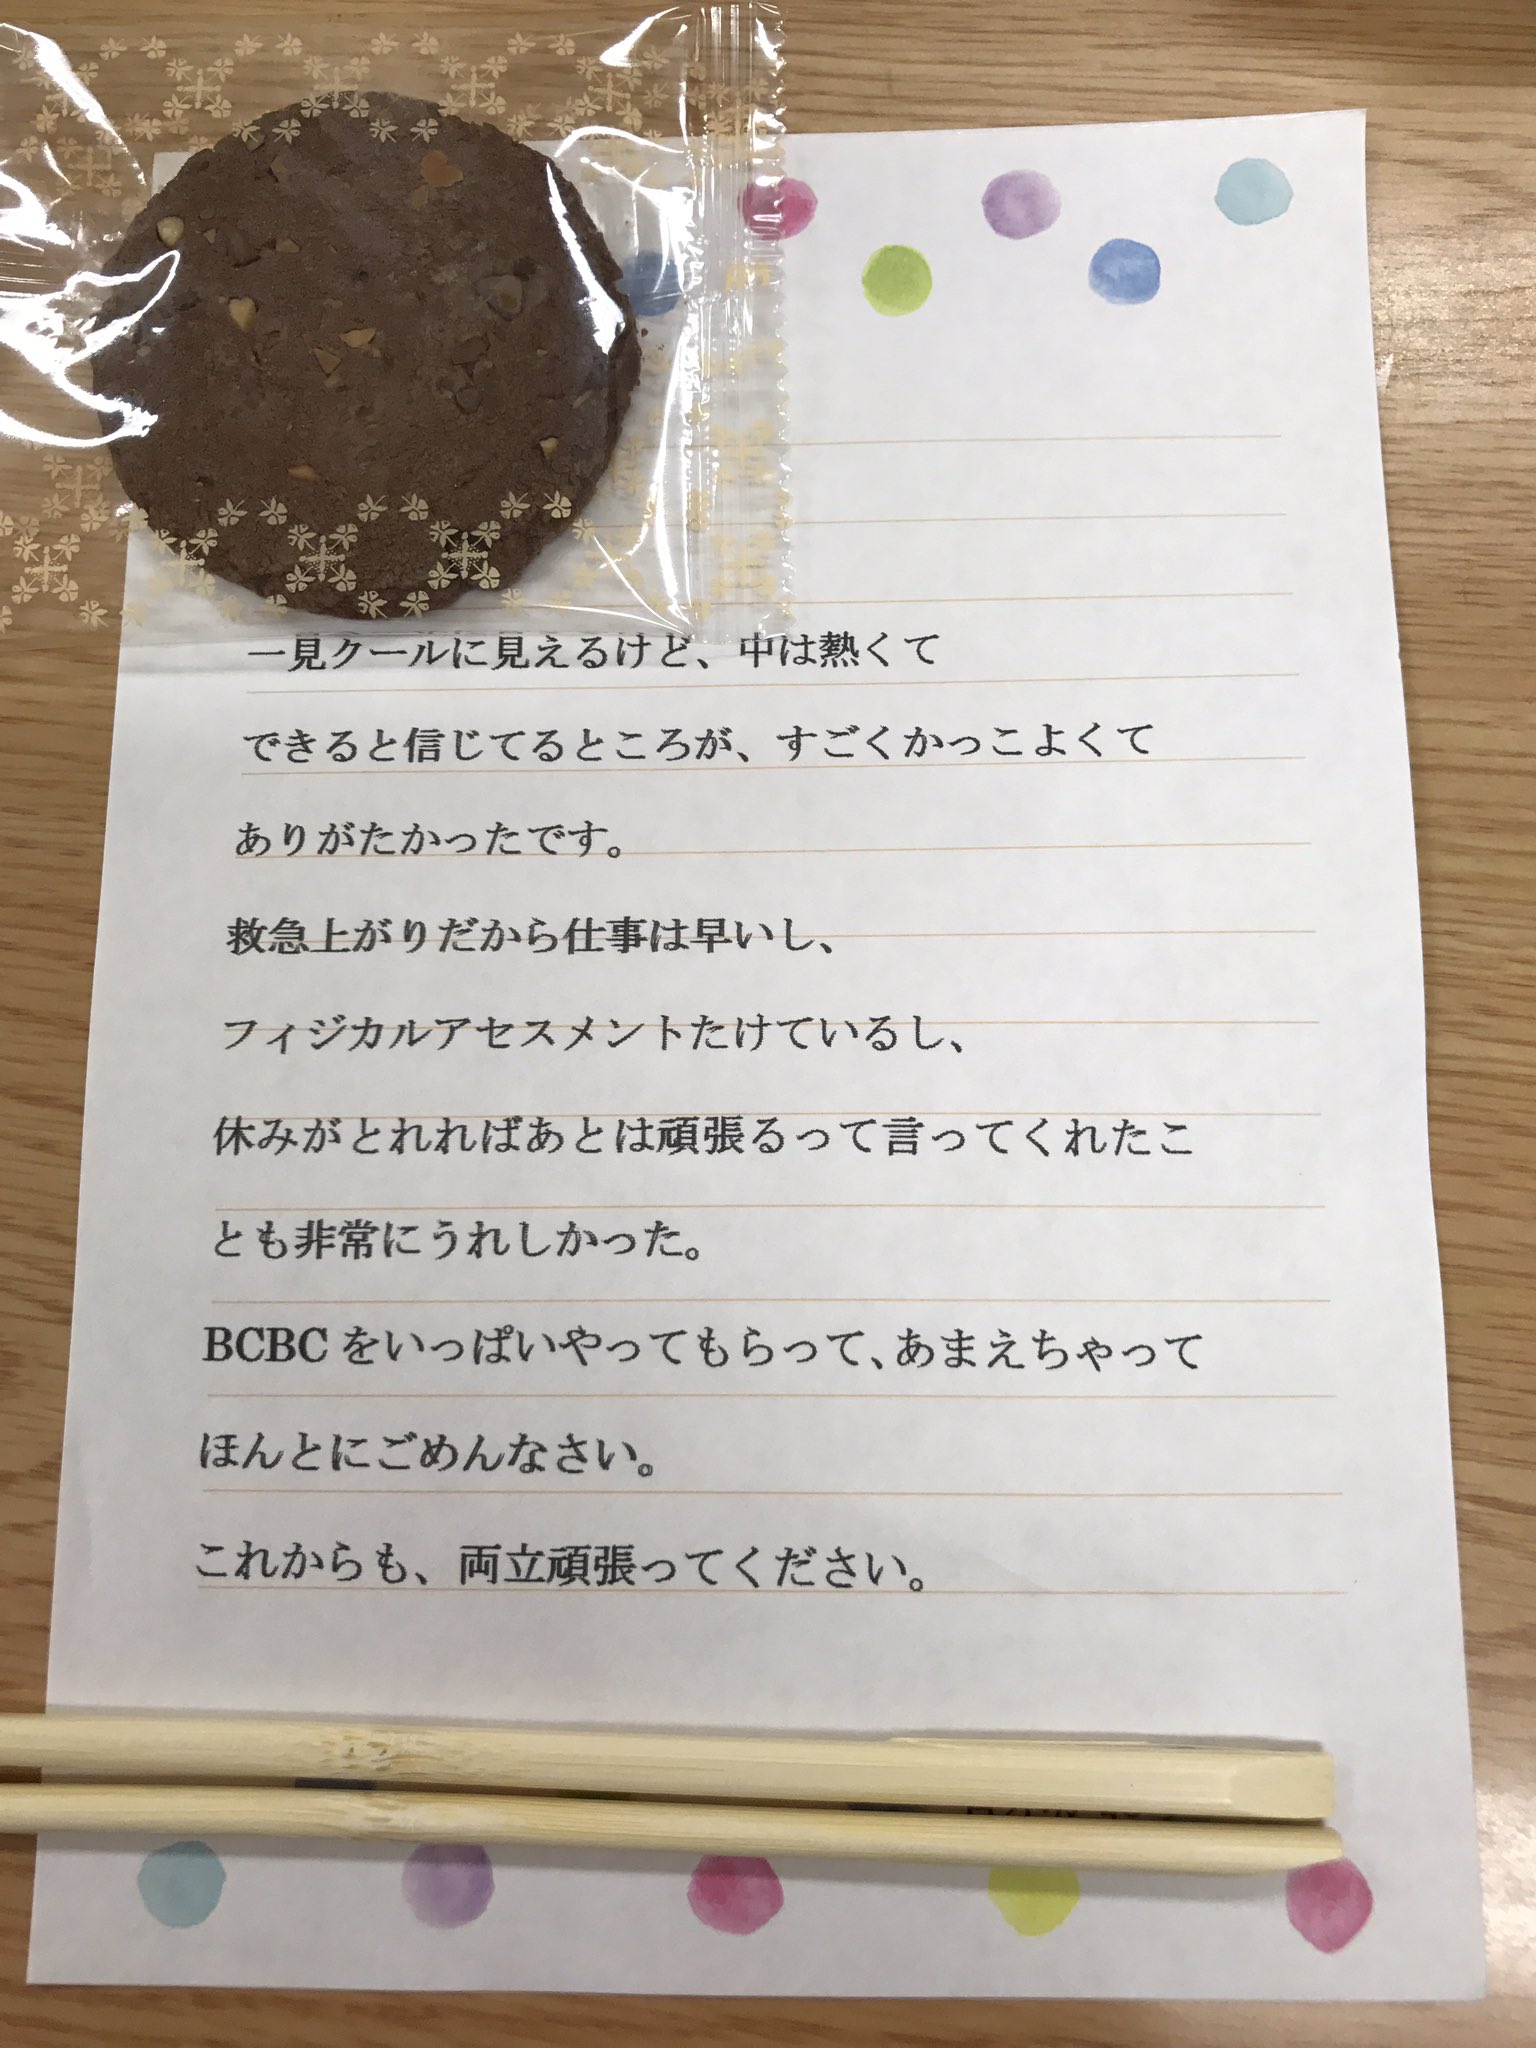 一見クールに見えるけど、中は熱くて
できると信じてるところが、すごくかっこよくて
ありがたかったです。
救急上がりだから仕事は早いし、
フィジカルアセスメントたけているし、
休みがとれればあとは頑張るって言ってくれたこ
とも非常にうれしかった。
BCBCをいっぱいやってもらって、あまえちゃって
ほんとにごめんなさい。
これからも、両立頑張ってください。